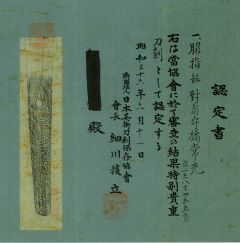 認定書
一、脇指 銘 對馬守橘常光
右は當協會に於て審査の結果特別貴重
刀剣として認定する
昭和三十六年六月十一日
財團法人日本美術刀剣保存協會
會長 細川護立
殿